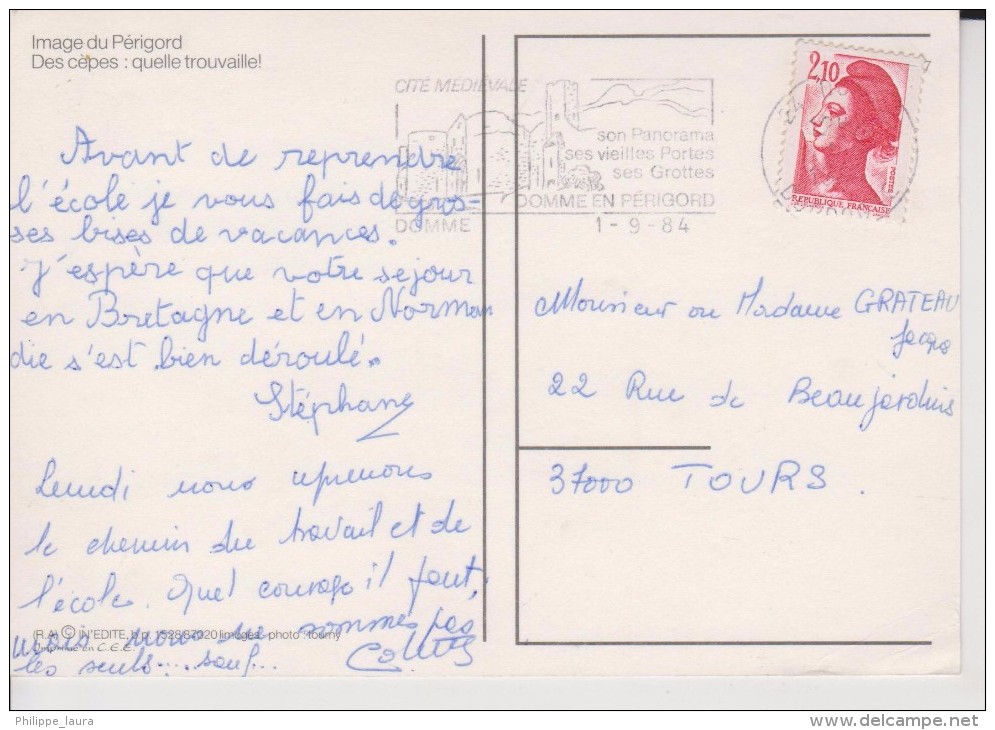 Image du Périgord
Des cèpes : quelle trouvaille!
Avant de reprendre
l'école je vous fais de gros=
ses bises de vacances.
J'espère que votre sejour
en Bretagne et en Norman
die s'est bien déroulé.
Stéphane
Lundi nous reprenons
le chemin du travail et de
l'école. Quel courage il faut,
mais nous ne sommes pas
les seuls.... sauf...
(R.A) © IN'EDITE, b.p. 1528 87020 limoges - photo : tourny
Imprimé en C.E.E.
CITÉ MÉDIÉVALE
son Panorama
ses vieilles Portes
ses Grottes
DOMME EN PÉRIGORD
DOMME
1-9-84
2,10
POSTES
REPUBLIQUE FRANÇAISE
Monsieur ou Madame GRATEAU
22 Rue de Beaujardin
37000 TOURS.
Philippe_laura
delcampe.net